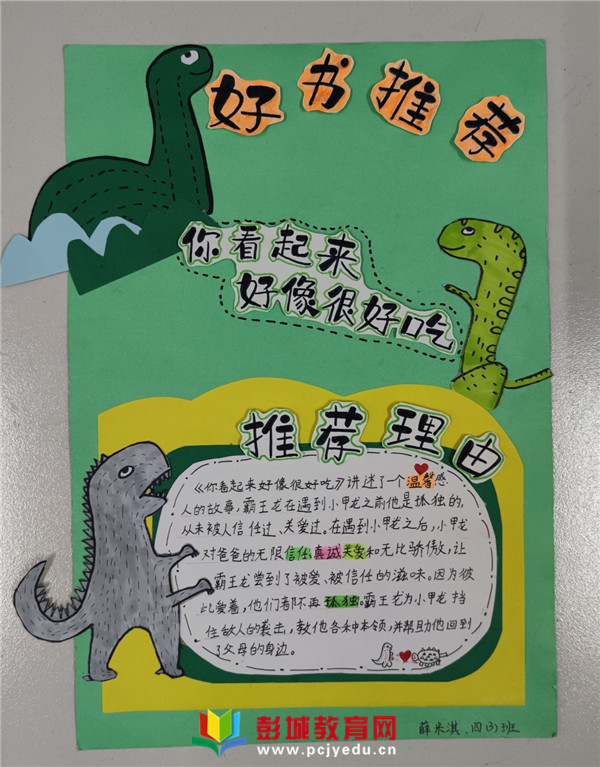 好书推荐
你看起来
好像很好吃
推荐理由
《你看起来好像很好吃》讲述了一个温馨感
人的故事，霸王龙在遇到小甲龙之前他是孤独的，
从未被人信任过、关爱过。在遇到小甲龙之后，小甲龙
对爸爸的无限信任真诚关爱和无比骄傲，让
霸王龙尝到了被爱、被信任的滋味。因为彼
此爱着，他们都不再孤独。霸王龙为小甲龙挡
住敌人的袭击，教他各种本领，并帮助他回到
了父母的身边。
薛米淇、四(3)班
彭城教育网
www.pcjyedu.cn